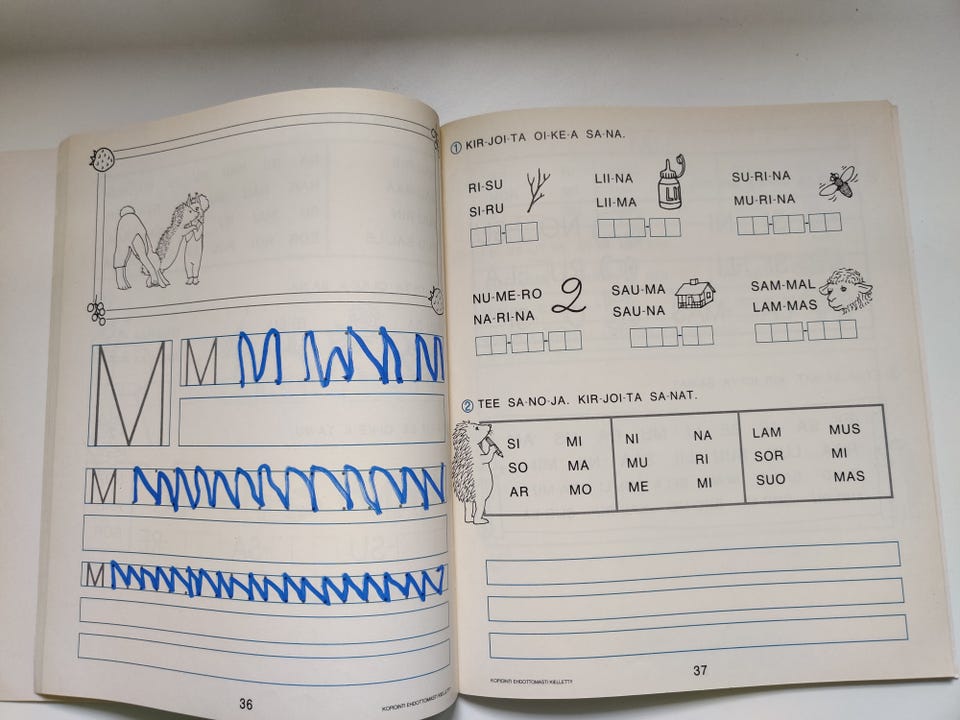 M M M M M M M
M MMMMMMMMM
M MMMMMMMMMMMM
36
KOPIOINTI EHDOTTOMASTI KIELLETTY
① KIR-JOI-TA OI-KE-A SA-NA.
RI-SU
SI-RU
LII-NA
LII-MA
LI
SU-RI-NA
MU-RI-NA
NU-ME-RO
NA-RI-NA
2
SAU-MA
SAU-NA
SAM-MAL
LAM-MAS
② TEE SA-NO-JA. KIR-JOI-TA SA-NAT.
SI MI NI NA LAM MUS
SO MA MU RI SOR MI
AR MO ME MI SUO MAS
37
KOPIOINTI EHDOTTOMASTI KIELLETTY